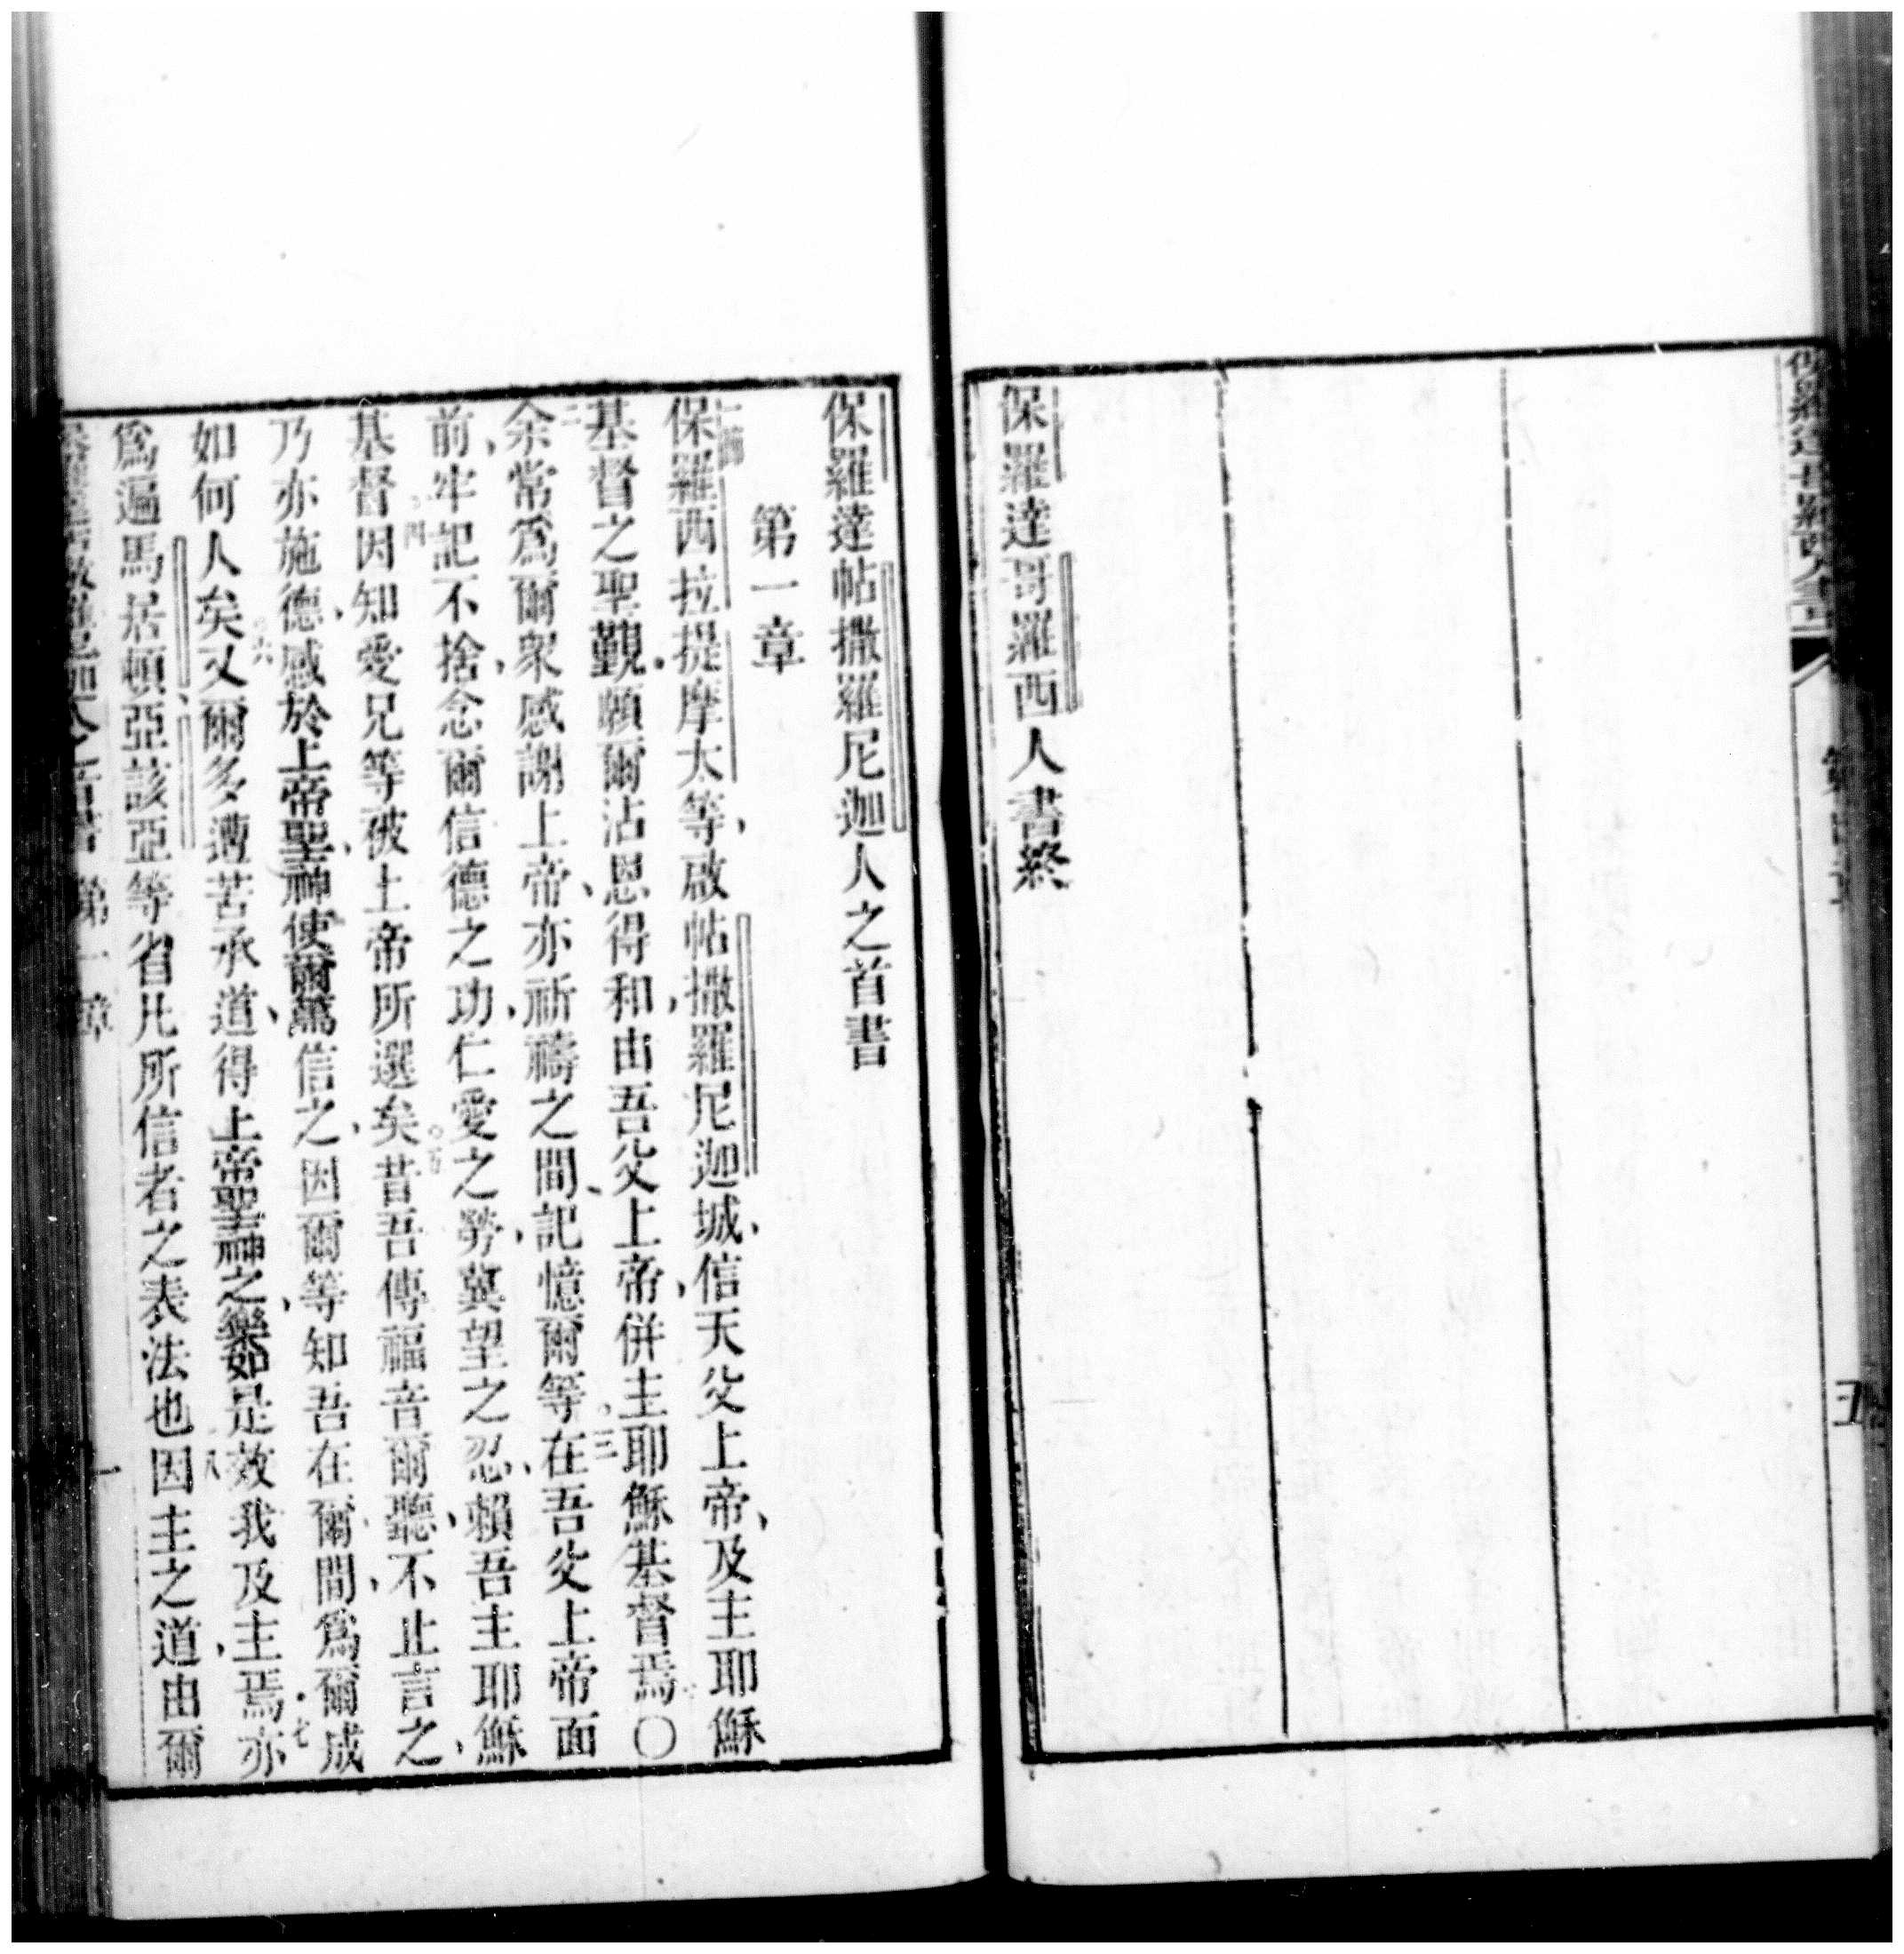 保羅達哥羅西人書終
保羅達帖撒羅尼迦人之首書
第一章
保羅西拉提摩太等、啟帖撒羅尼迦城、信天父上帝、及主耶穌
基督之聖覲、願爾沾恩得和、由吾父上帝、併主耶穌基督焉〇
余常爲爾衆感謝上帝、亦祈禱之間、記憶爾等在吾父上帝面
前、牢記不捨、念爾信德之功、仁愛之勞、冀望之忍、賴吾主耶穌
基督因知愛兄等被上帝所選矣昔吾傳福音爾聽、不止言之、
乃亦施德、感於上帝聖神、使爾篤信之、因爾等知吾在爾間、爲爾成
如何人矣又爾多遭苦承道、得上帝聖神之樂、如是效我及主焉亦
爲遍馬居頓、亞該亞等省凡所信者之表法也因主之道、由爾
第一章
一